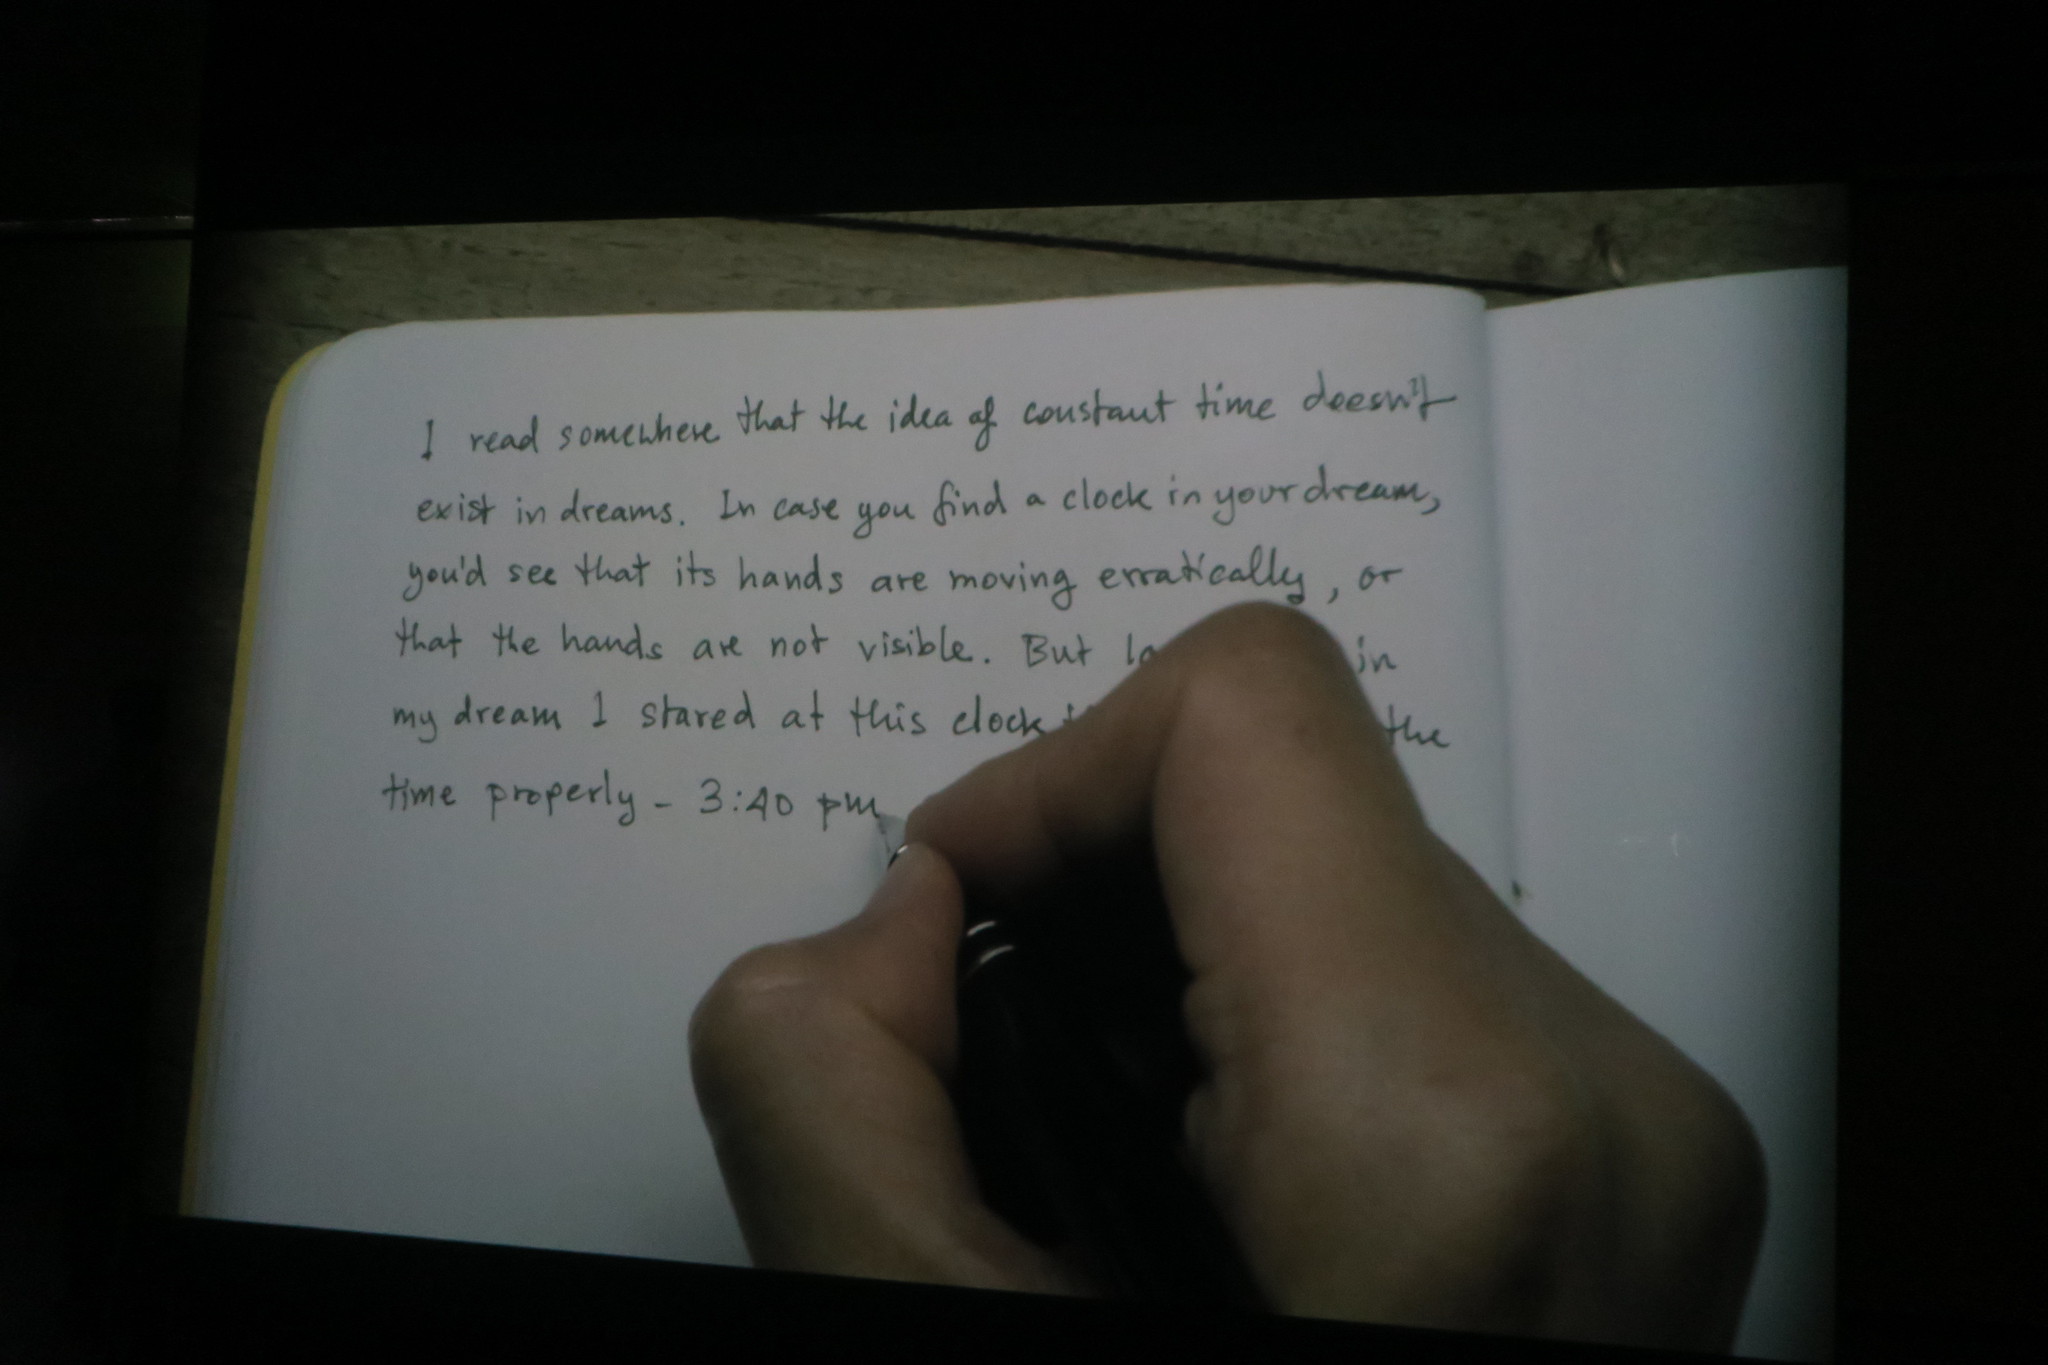 I read somewhere that the idea of constant time doesn't
exist in dreams. In case you find a clock in your dream,
you'd see that its hands are moving erratically, or
that the hands are not visible. But in
my dream I stared at this clock the
time properly - 3:40 pm